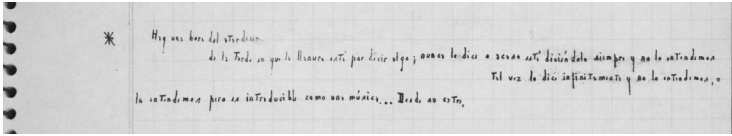 * Hay una hora del atardecer
de la tarde en que la llanura está por decir algo; nunca lo dice o acaso está diciéndolo siempre y no lo entendemos
Tal vez lo dice infinitamente y no lo entendemos, o
lo entendemos pero es intraducible como una música... Desde